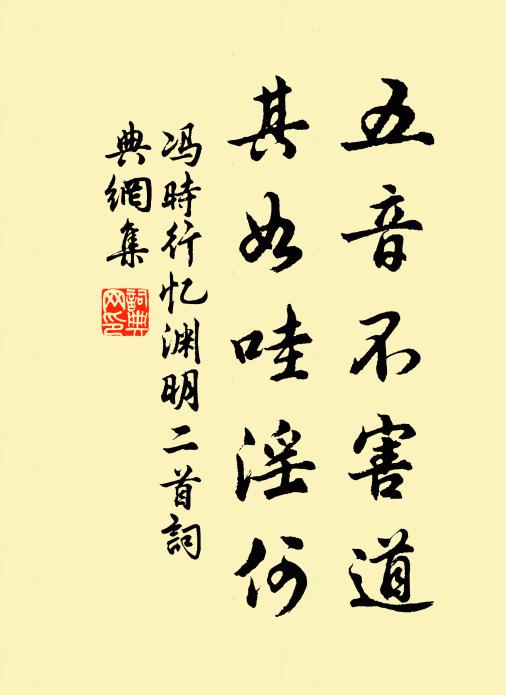 五音不害道
其如哇淫何
冯時行忆渊明二首詞
典網集
詞典
网印